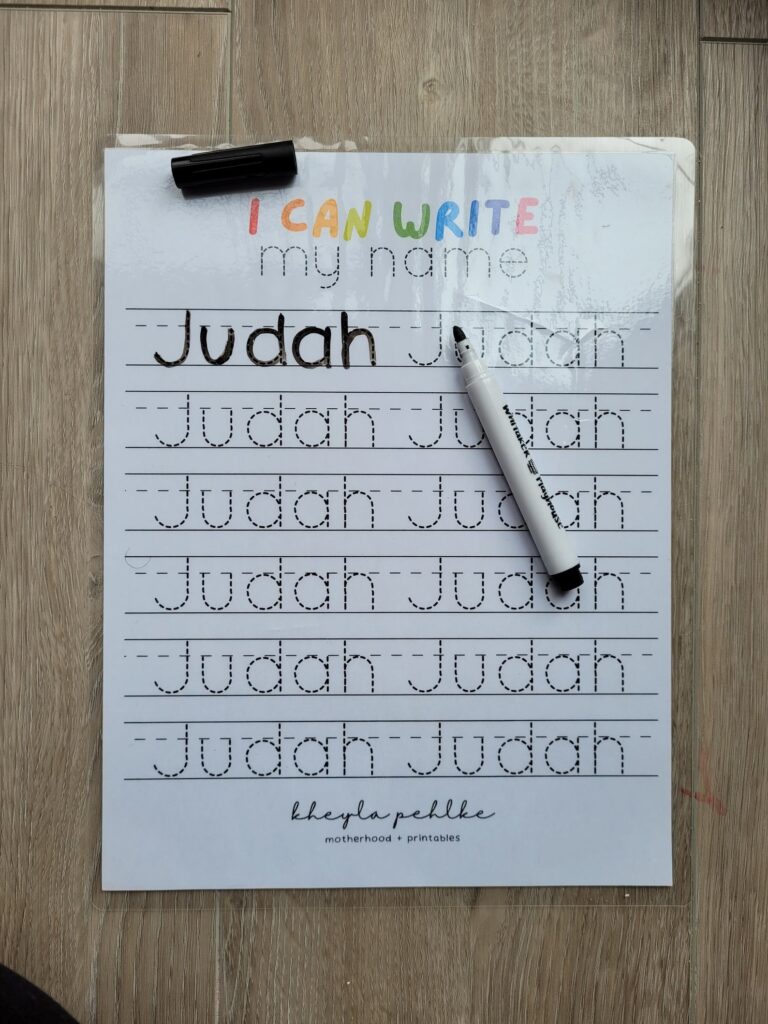 I CAN WRITE
my name
Judah Judah
Judah Judah
Judah Judah
Judah Judah
Judah Judah
Judah Judah
kheyla pehlke
motherhood + printables
Whitaker Playhouse